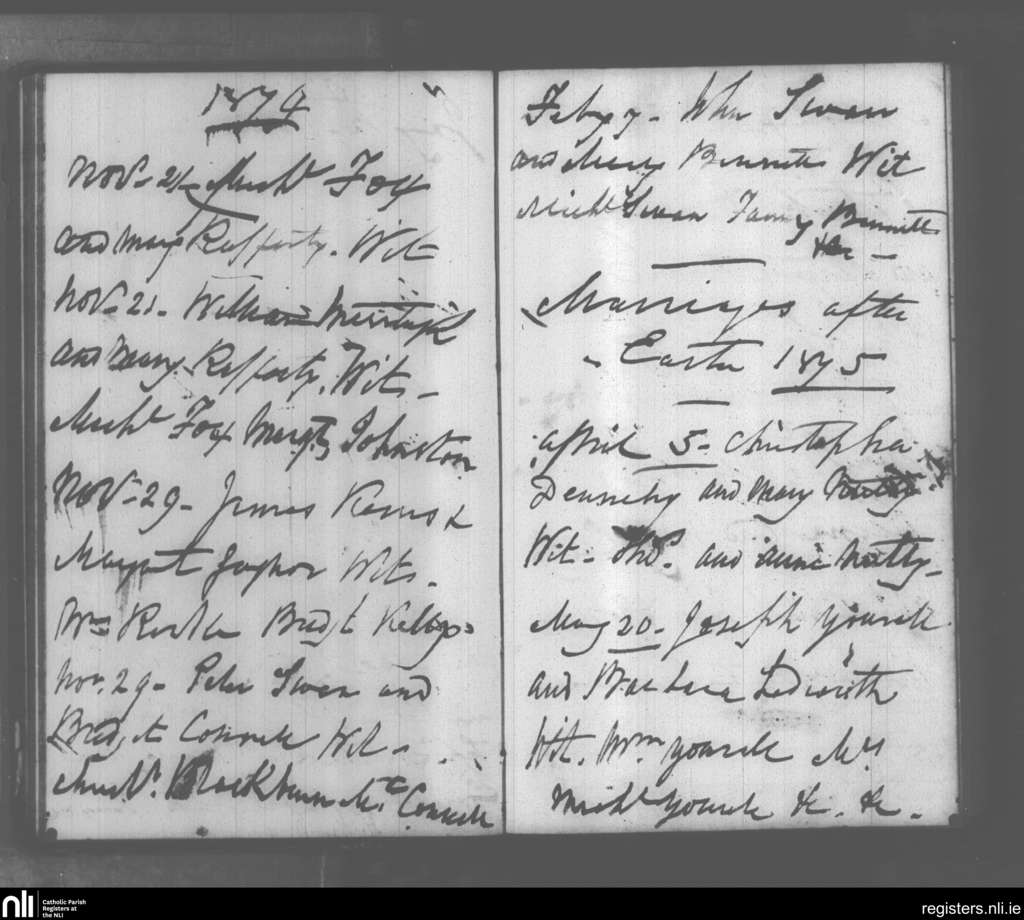 1874
Nov. 21 - Michl. Fox
and Mary Rafferty. Wit
Nov. 21. William Murtagh
and Mary Rafferty. Wits -
Michl. Fox Margt. Johnston
Nov. 29 - James Kerns &
Margaret Wits.
Wm. Bridgt.
Nov. 29 - Peter Swan and
Bridgt. Wit -
Michl. Blackburn
Feby 7 - John Swan
and Bennett Wit
Michl. Swan Fanny Bennett
&c -
Marriages after
- Easter 1875
April 5 - Christopher
Dennehy and Mary
Wit - Tho. and Annie Nutty -
May 20 - Joseph Yourell
and Barbara Ledwith
Wit. Wm. Yourell
Michl. Yourell &c. &c -
nli
Catholic Parish
Registers at
the NLI
registers.nli.ie